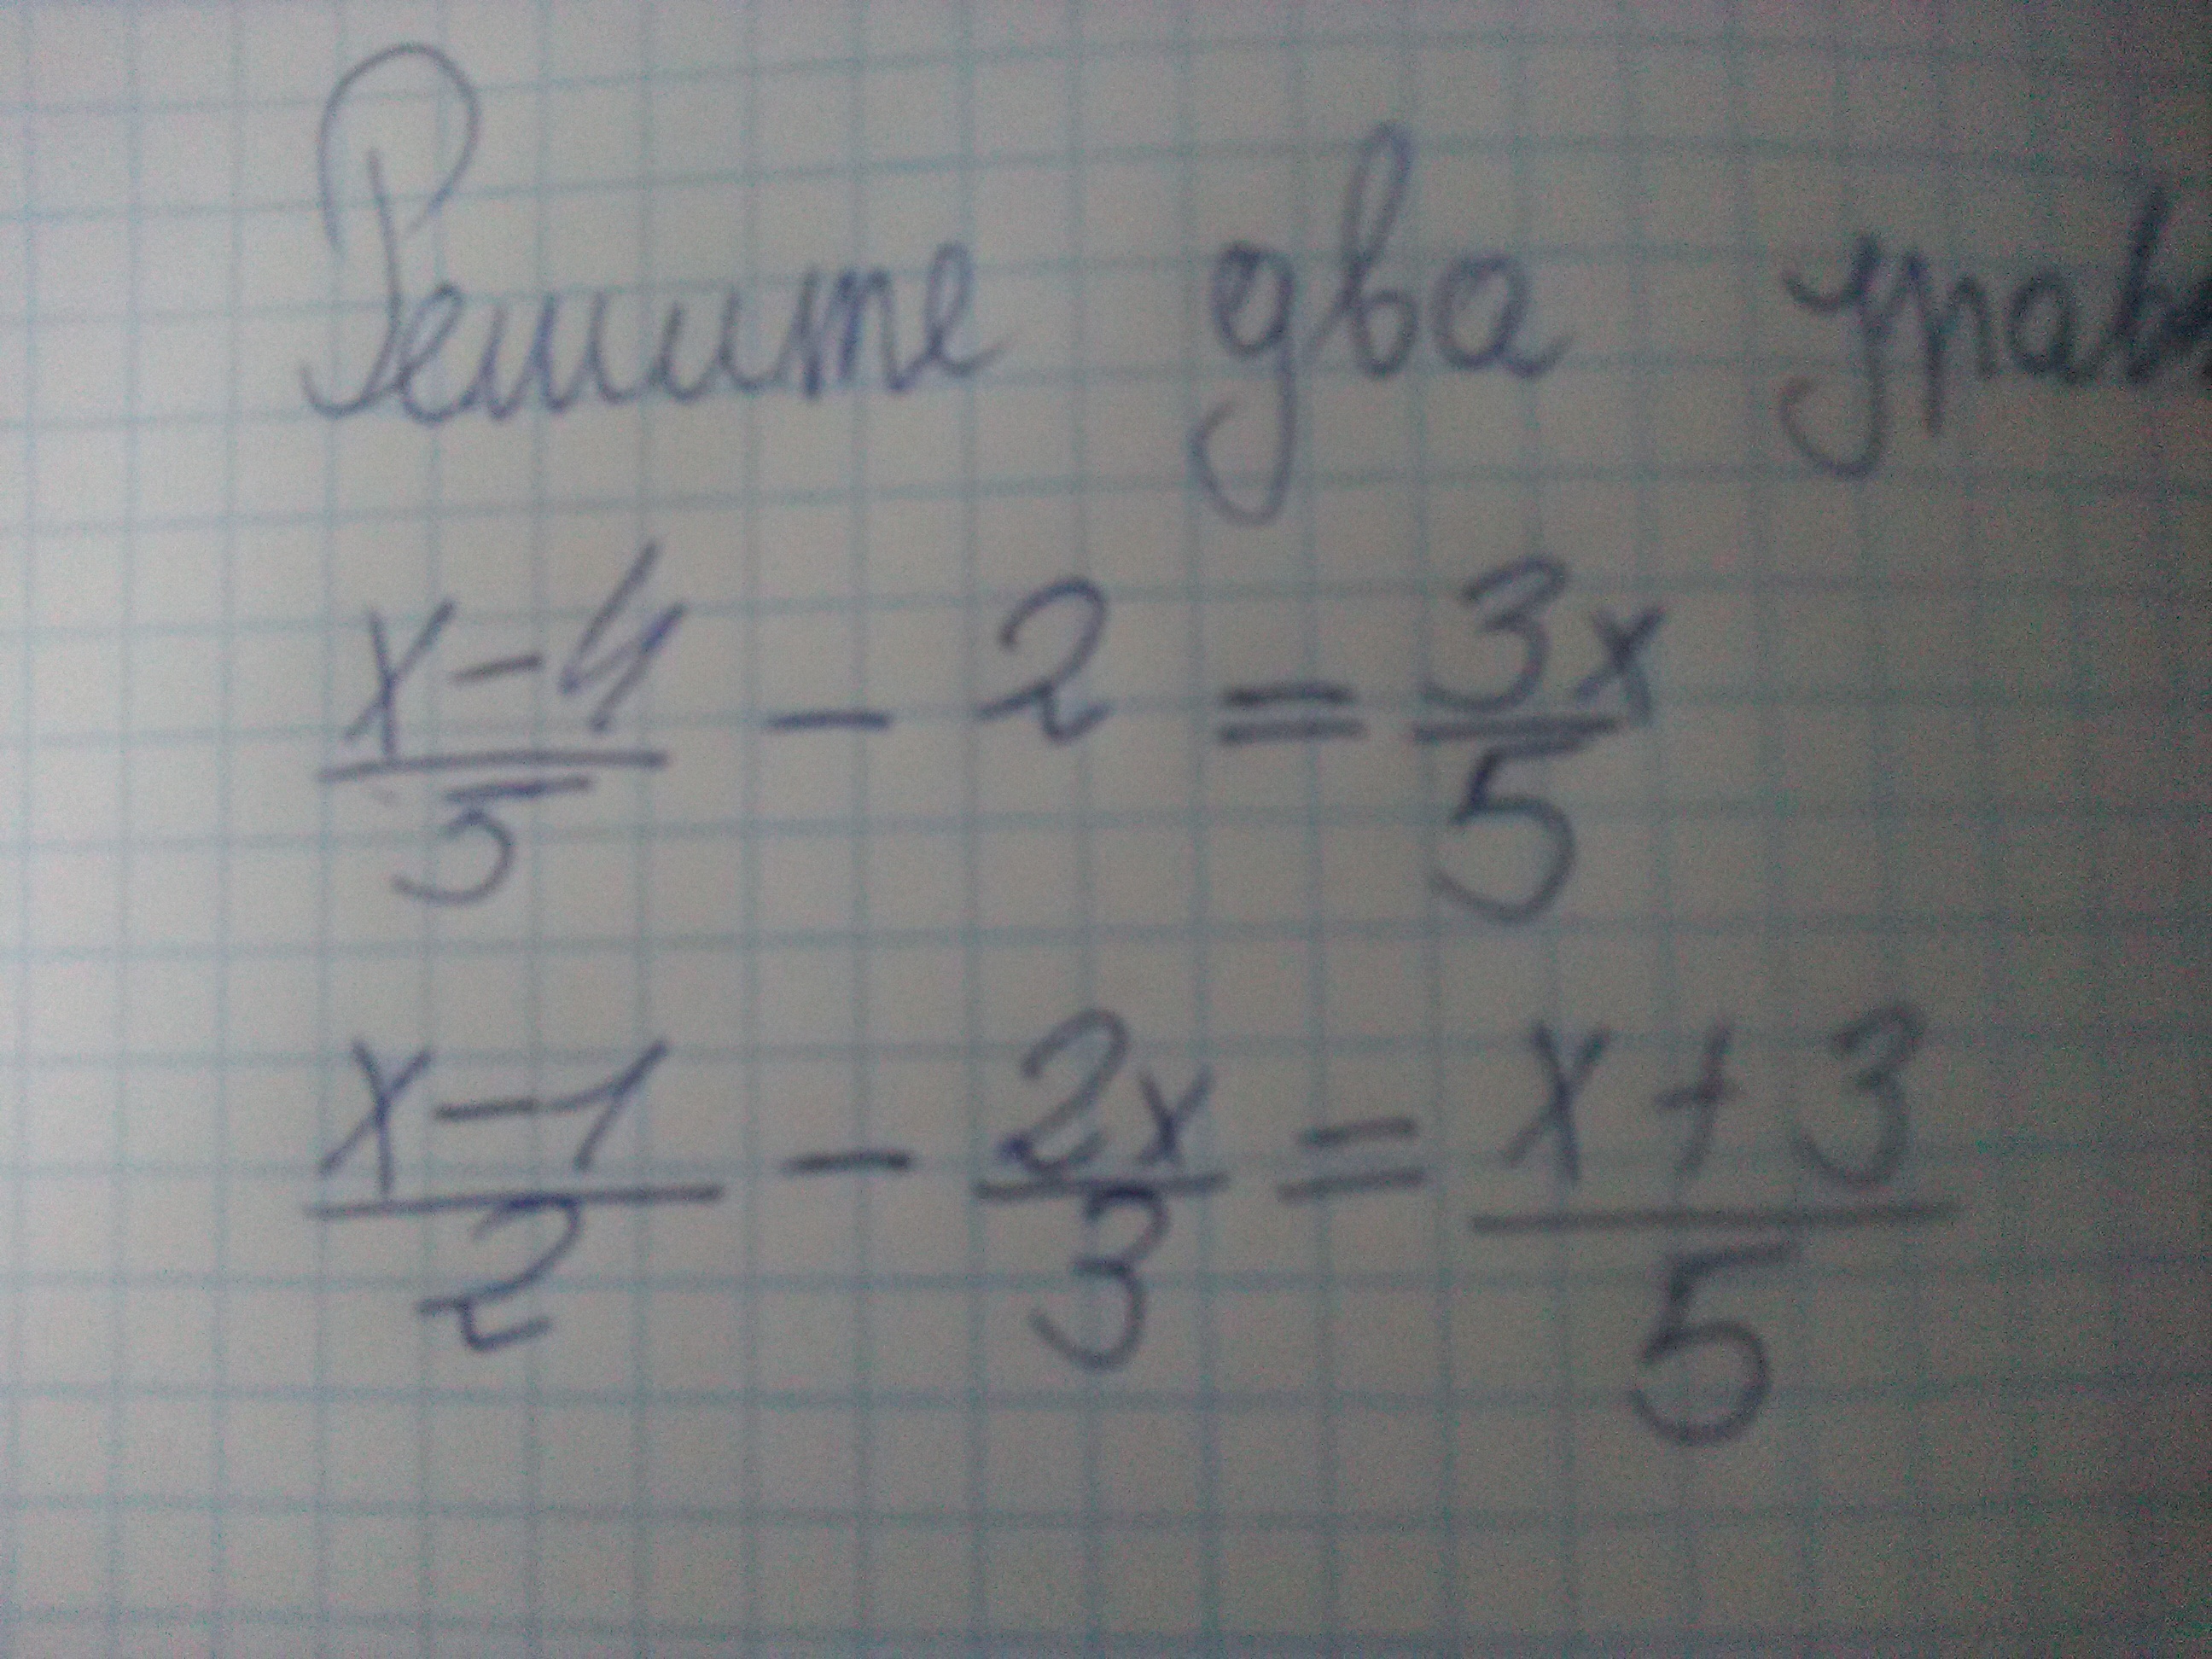 Решите два урав
x-4/5 - 2 = 3x/5
x-1/2 - 2x/3 = x+3/5